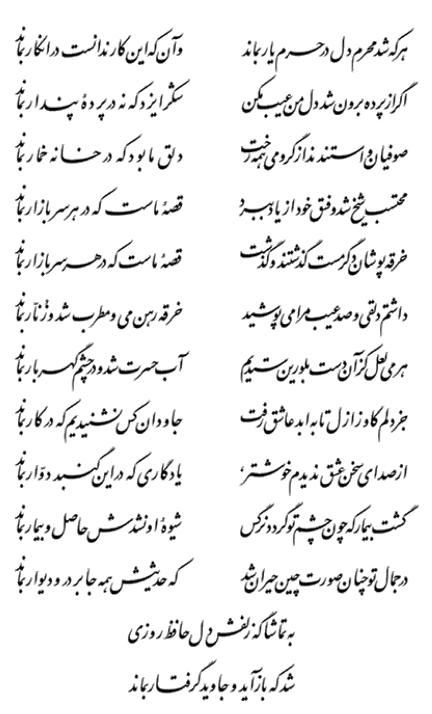 هر که شد محرم دل در حرم یار بماند وآن که این کار ندانست در انکار بماند
اگر از پرده برون شد دل من عیب مکن شکر ایزد که نه در پردهٔ پندار بماند
صوفیان واستدند از گرو می همه رخت دلق ما بود که در خانه خمار بماند
محتسب شیخ شد و فسق خود از یاد ببرد قصهٔ ماست که در هر سر بازار بماند
خرقه پوشان دگر مست گذشتند و گذشت قصهٔ ماست که در هر سر بازار بماند
داشتم دلقی و صد عیب مرا می پوشید خرقه رهن می و مطرب شد و زنّار بماند
هر می لعل کز آن دست بلورین ستدیم آب حسرت شد و در چشم گهربار بماند
جز دلم کاو ز ازل تا به ابد عاشق رفت جاودان کس نشنیدیم که در کار بماند
از صدای سخن عشق ندیدم خوشتر، یادگاری که در این گنبد دوّار بماند
گشت بیمار که چون چشم تو گردد نرگس شیوهٔ او نشدش حاصل و بیمار بماند
در جمال تو چنان صورت چین حیران شد که حدیثش همه جا بر در و دیوار بماند
به تماشاگه زلفش دل حافظ روزی
شد که بازآید و جاوید گرفتار بماند